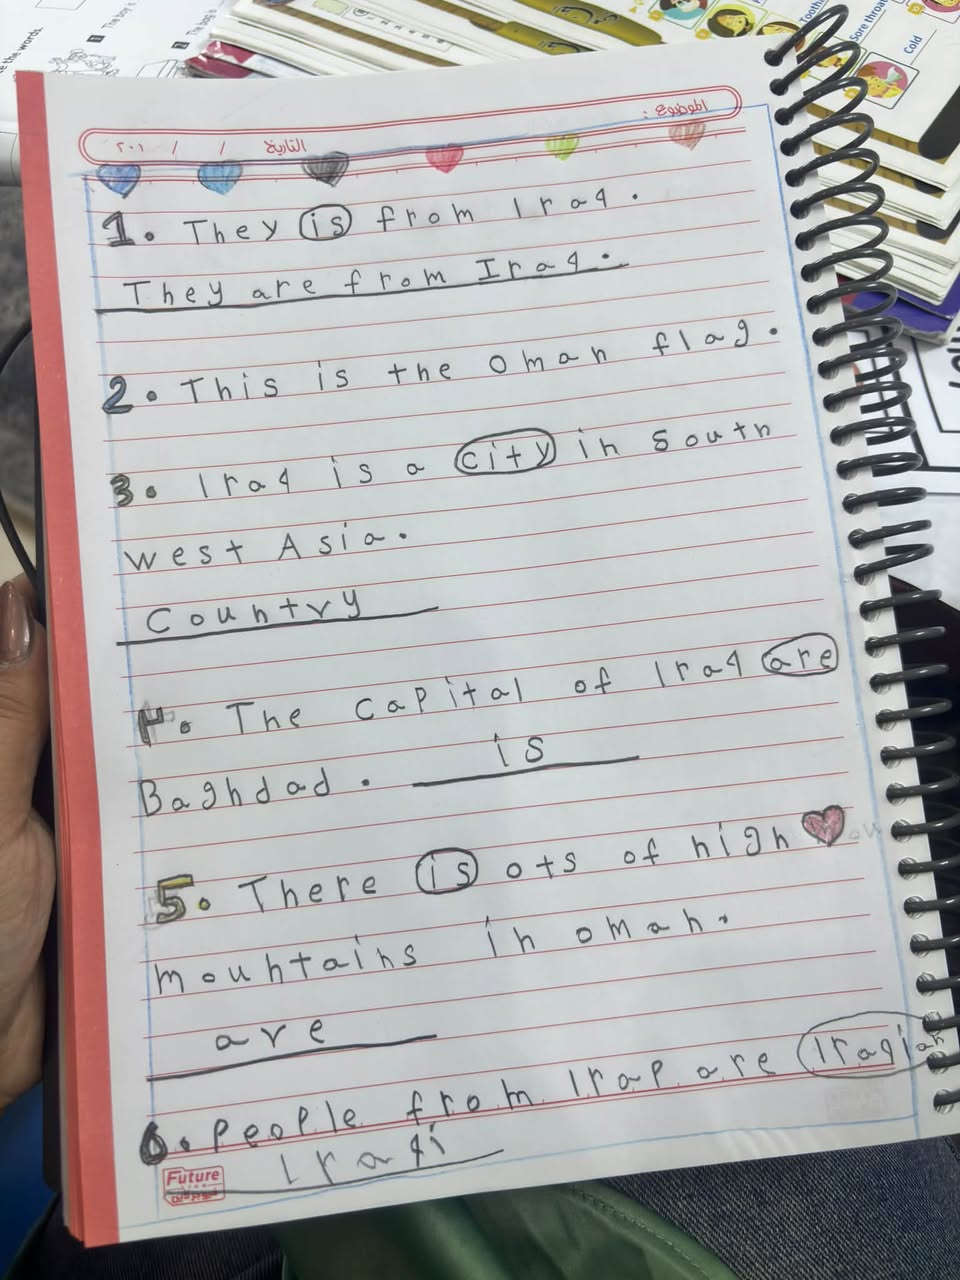 e the words.
1
The boy is
2
The bag
Tooth
Sore throat
Cold
الموضوع :
التاريخ / / ٢٠١
1. They is from Iraq.
They are from Iraq.
2. This is the oman flag.
3. Iraq is a city in south
west Asia.
Country
4. The capital of Iraq are
Baghdad. is
5. There is ots of high
mountains in oman.
are
6. People from Irap are Iraqian
Iraqi
Future